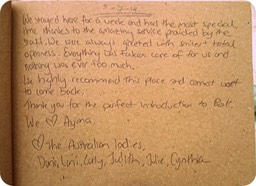 We stayed here for a week and had the most special
time thanks to the amazing service provided by the
staff. We were always greeted with smiles & total
openness. Everything was taken care of for us and
nothing was ever too much.
We highly recommend this place and cannot wait
to come back.
Thank you for the perfect introduction to Bali.
We ♡ Ayana.
♡ The Australian ladies,
Julie, Cynthia